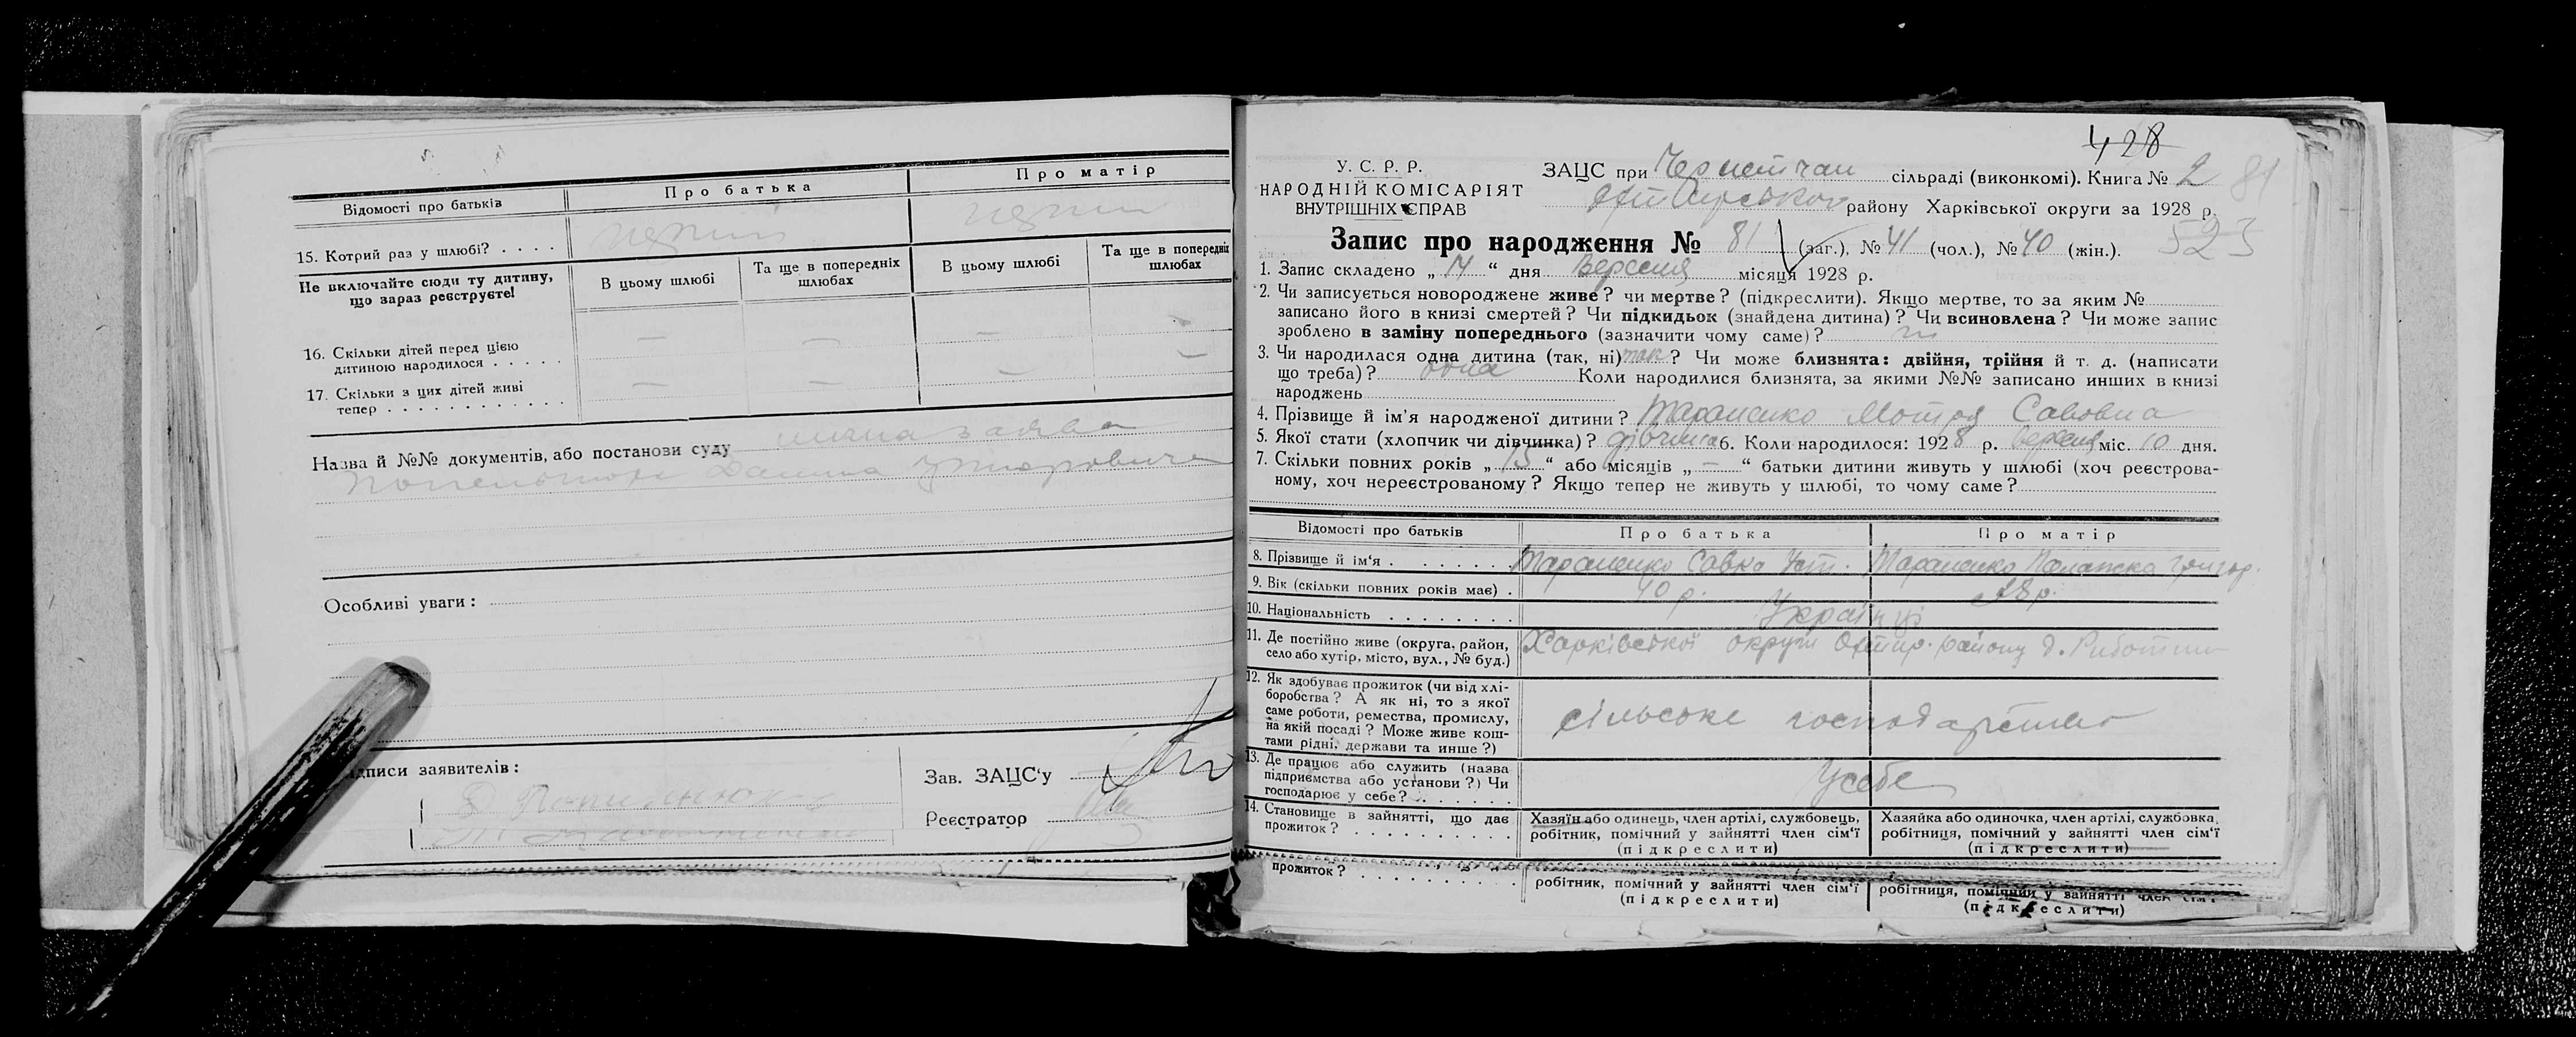 Відомості про батьків
Про батька
Про матір
15. Котрий раз у шлюбі? . . . .
Не включайте сюди ту дитину, що зараз реєструєте!
В цьому шлюбі
Та ще в попередніх шлюбах
В цьому шлюбі
Та ще в попередніх шлюбах
16. Скільки дітей перед цією
дитиною народилося . . . . .
— — — —
17. Скільки з цих дітей живі
тепер . . . . . . . . . . . .
— — — —
Назва й №№ документів, або постанови суду
Данила
Особливі уваги:
дписи заявителів:
Зав. ЗАЦС‘у
Реєстратор
428
У. С. Р. Р.
НАРОДНІЙ КОМІСАРІЯТ
ВНУТРІШНІХ СПРАВ
ЗАЦС при сільраді (виконкомі). Книга № 2 81
району Харківської округи за 1928 р.
523
Запис про народження № 81 (заг.), № 41 (чол.), № 40 (жін.).
1. Запис складено „ 14 “ дня вересня місяця 1928 р.
2. Чи записується новороджене живе? чи мертве? (підкреслити). Якщо мертве, то за яким №
записано його в книзі смертей? Чи підкидьок (знайдена дитина)? Чи всиновлена? Чи може запис
зроблено в заміну попереднього (зазначити чому саме)?
3. Чи народилася одна дитина (так, ні) так? Чи може близнята: двійня, трійня й т. д. (написати
що треба)? одна Коли народилися близнята, за якими №№ записано инших в книзі
народжень
4. Прізвище й ім’я народженої дитини? Тараненко Мотря Савовна
5. Якої статі (хлопчик чи дівчинка)? дівчинка 6. Коли народилося: 1928 р. вересня міс. 10 дня.
7. Скільки повних років „ 15 “ або місяців „ — “ батьки дитини живуть у шлюбі (хоч реєстрова-
ному, хоч нереєстрованому? Якщо тепер не живуть у шлюбі, то чому саме?
Відомості про батьків
Про батька
Про матір
8. Прізвище й ім‘я . . . . . . .
Тараненко Савка Уст.
Тараненко Палажка Григор.
9. Вік (скільки повних років має) .
40 р.
38 р.
10. Національність . . . . . . . .
Українці
11. Де постійно живе (округа, район,
село або хутір, місто, вул., № буд.)
Харківської округи Охтир. району
12. Як здобуває прожиток (чи від хлі-
боробства? А як ні, то з якої
саме роботи, ремества, промислу,
на якій посаді? Може живе кош-
тами рідні, держави та инше?)
сільське господарство
13. Де працює або служить (назва
підприємства або установи?) Чи
господарює у себе? . . . . . .
У себе
14. Становище в зайнятті, що дає
прожиток? . . . . . . . . . .
Хазяїн або одинець, член артілі, службовець,
робітник, помічний у зайнятті член сім‘ї
(підкреслити)
Хазяйка або одиночка, член артілі, службовка,
робітниця, помічний у зайнятті член сім‘ї
(підкреслити)
прожиток? . . . . . . . . . .
робітник, помічний у зайнятті член сім‘ї
(підкреслити)
робітниця, помічний у зайнятті член сім‘ї
(підкреслити)